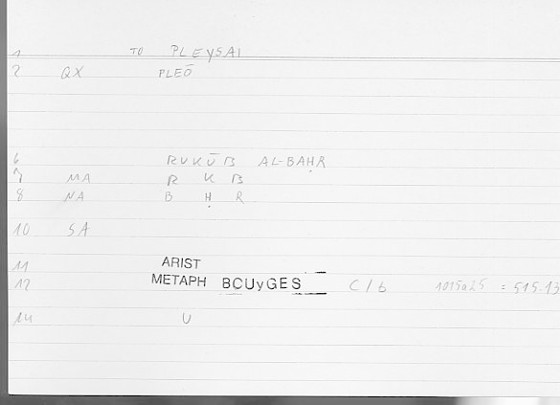 1 TO PLEYSAI
2 QX PLEŌ
6 RUKŪB AL-BAḤR
7 MA R K B
8 NA B Ḥ R
10 SA
11 ARIST
12 METAPH BCUyGES C/b 1015a25 = 515.13
14 U